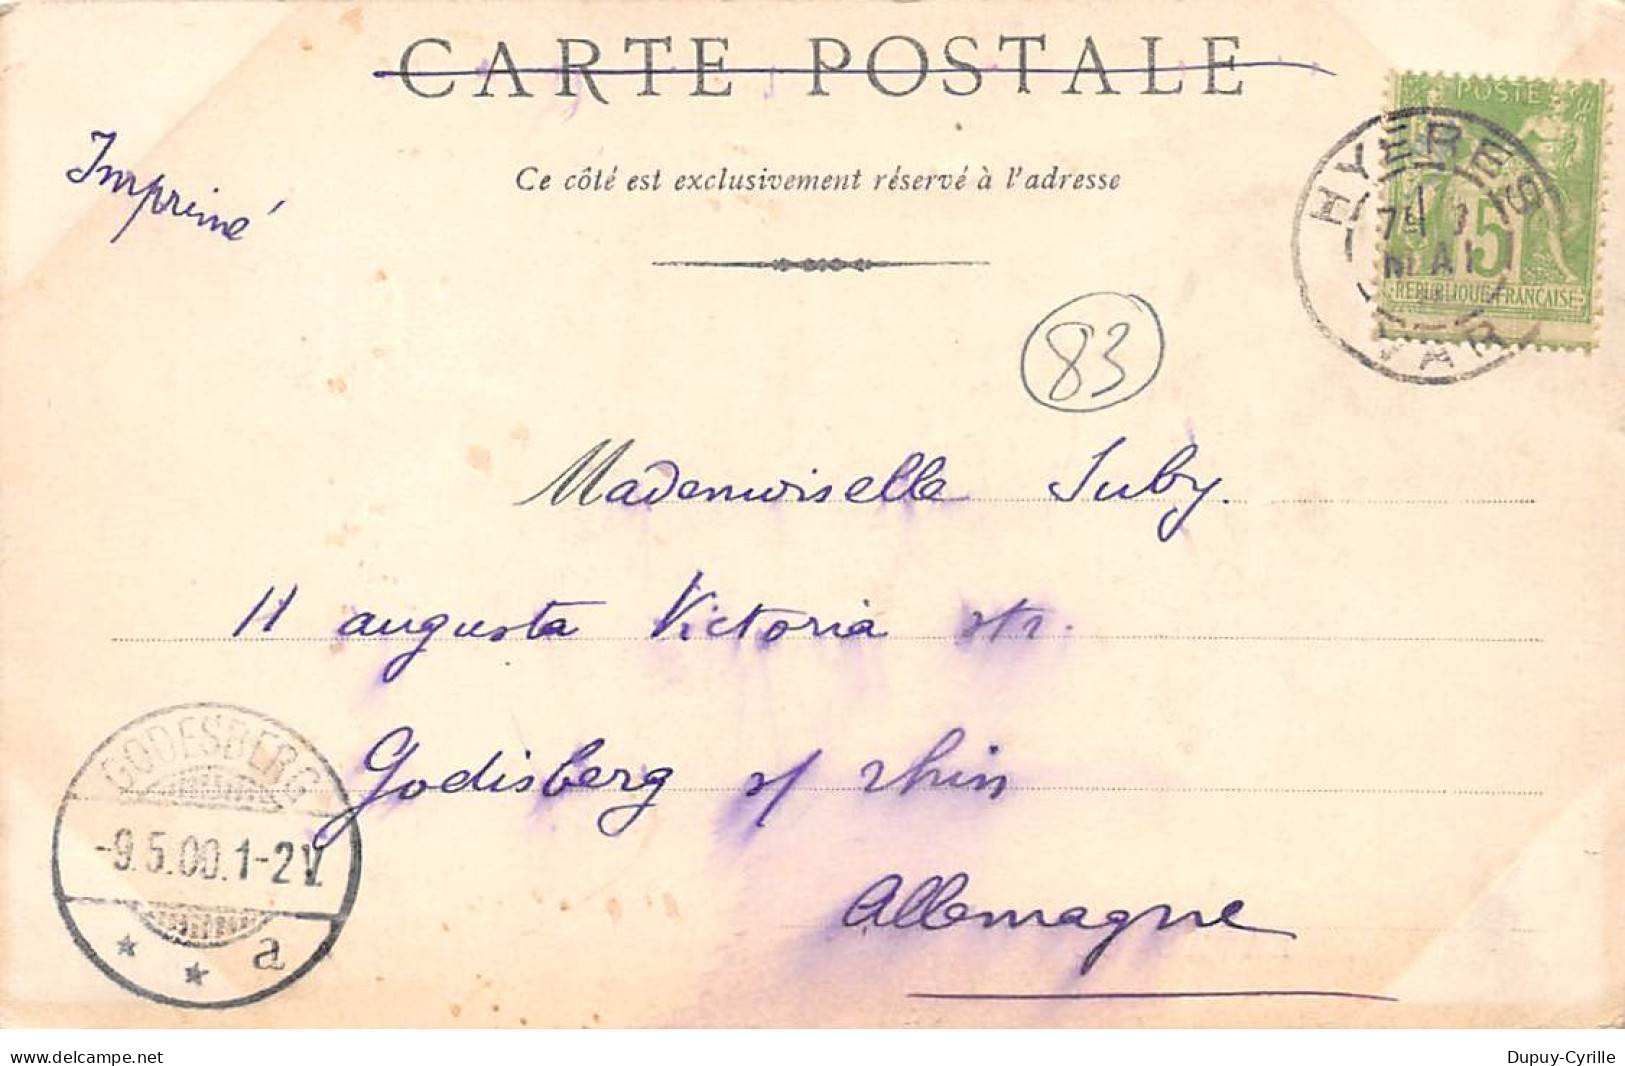 CARTE POSTALE
Imprimé
Ce côté est exclusivement réservé à l'adresse
POSTE
5
REPUBLIQUE FRANÇAISE
HYERES
MAI
VAR
83
Mademoiselle Suby.
11 augusta Victoria str.
Godisberg s/ rhin
Allemagne
GODESBERG
-9.5.00.1-2V.
a
www.delcampe.net
Dupuy-Cyrille